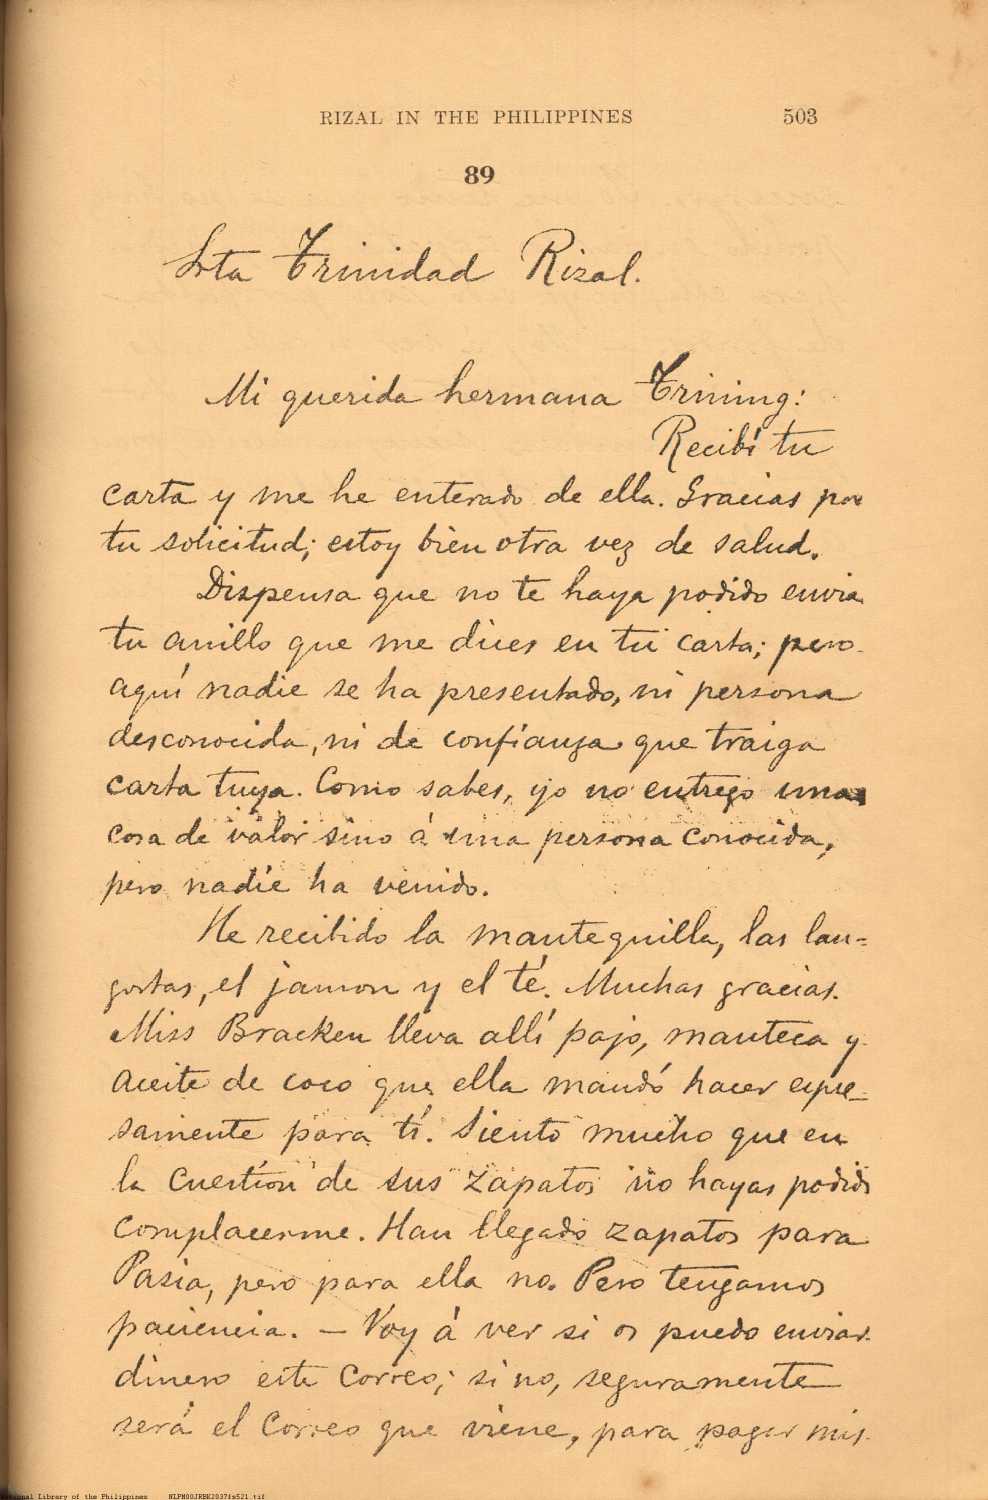 RIZAL IN THE PHILIPPINES 503
89
Srta Trinidad Rizal.
Mi querida hermana Trining:
Recibí tu
carta y me he enterado de ella. Gracias por
tu solicitud; estoy bien otra vez de salud.
Dispensa que no te haya podido enviar
tu anillo que me dices en tu carta; pero
aquí nadie se ha presentado, ni persona
desconocida, ni de confianza que traiga
carta tuya. Como sabes, yo no entrego una
cosa de valor sino á una persona conocida,
pero nadie ha venido.
He recibido la mantequilla, las lan-
gostas, el jamon y el té. Muchas gracias.
Miss Bracken lleva allí pajo, manteca y
aceite de coco que ella mandó hacer expre-
samente para tí. Siento mucho que en
la cuestion de sus zapatos no hayas podido
complacerme. Han llegado zapatos para
Pasia, pero para ella no. Pero tengamos
paciencia. — Voy á ver si os puedo enviar
dinero este correo; si no, seguramente
será el correo que viene, para pagar mis
National Library of the Philippines NLPM00JRBK2037fs521.tif